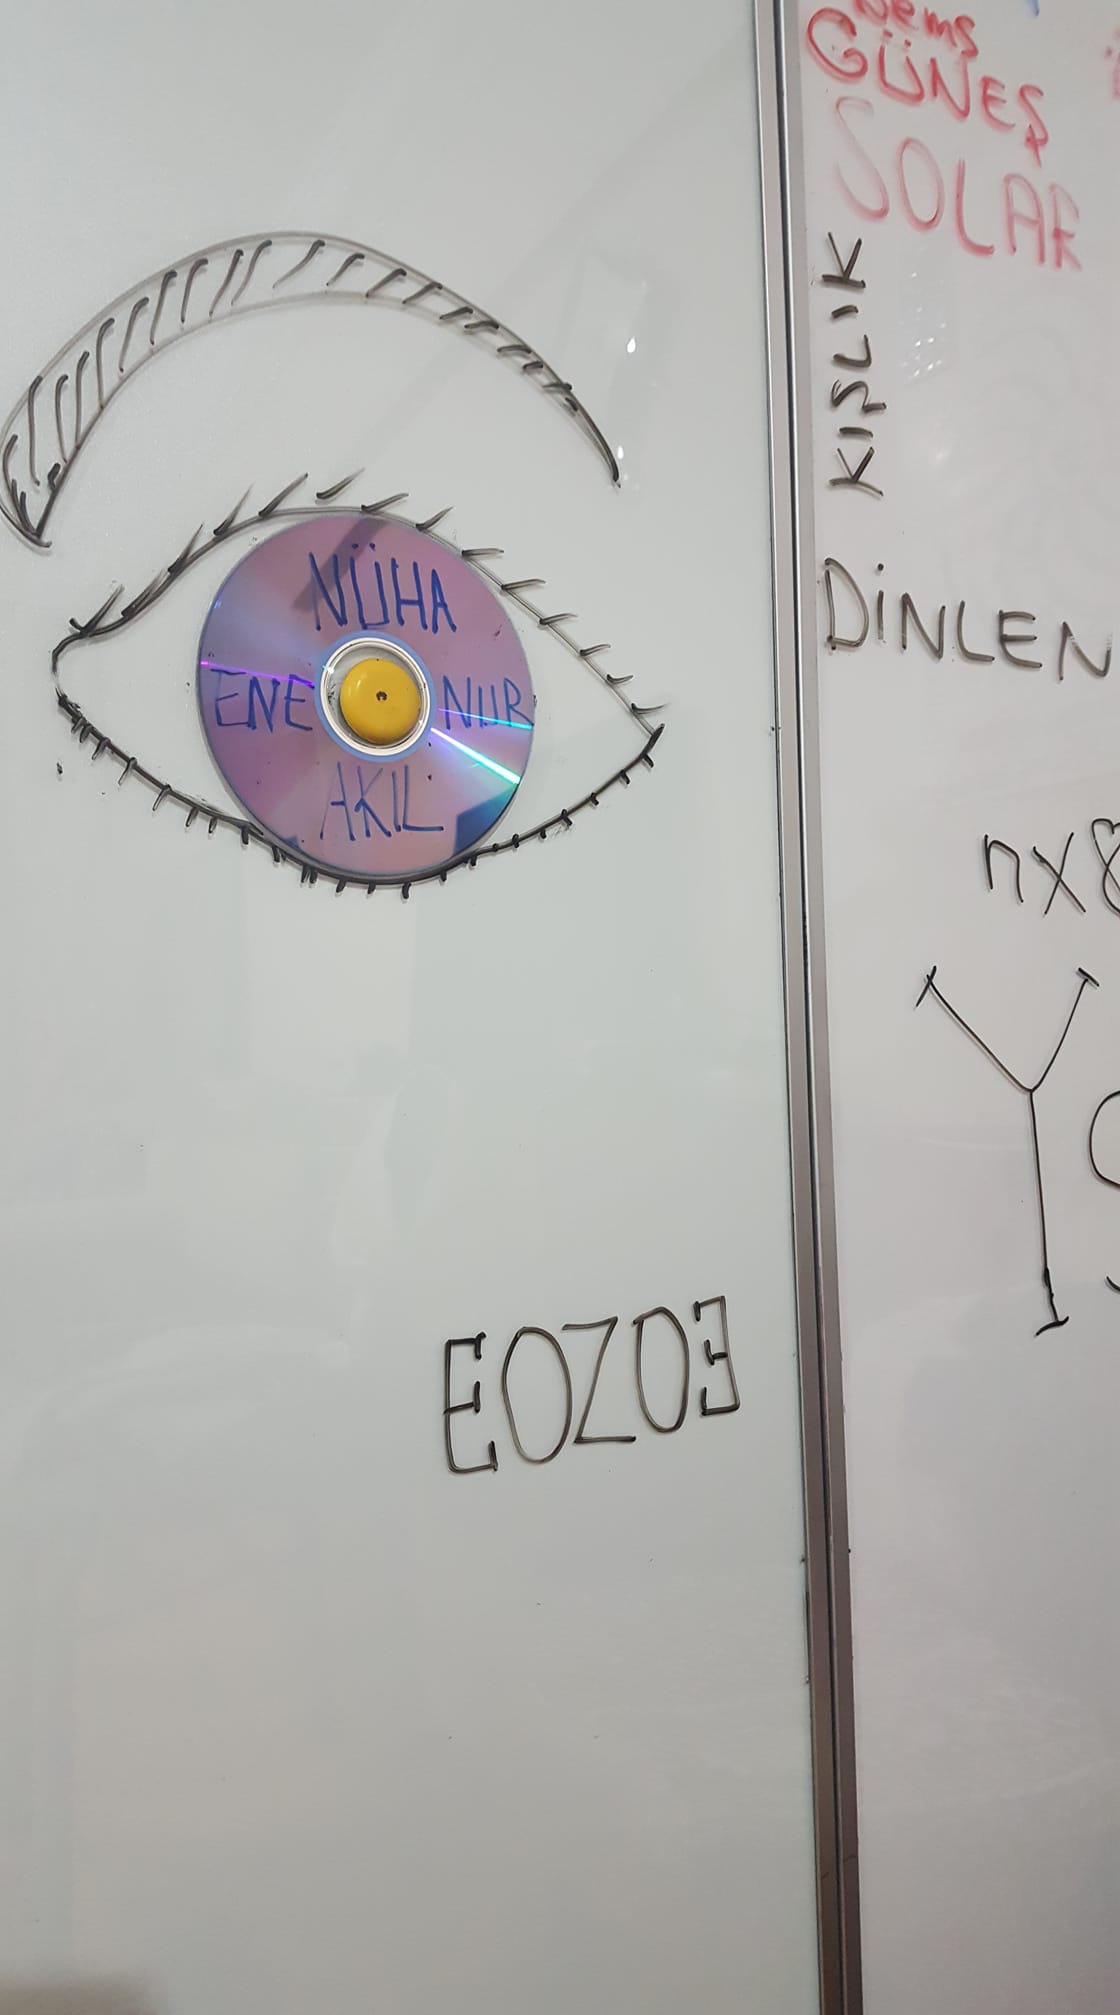 NÜHA
ENE NUR
AKIL
EOZOƎ
Şems
GÜNEŞ
SOLAR
KIŞLIK
DİNLEN
nx8
Y